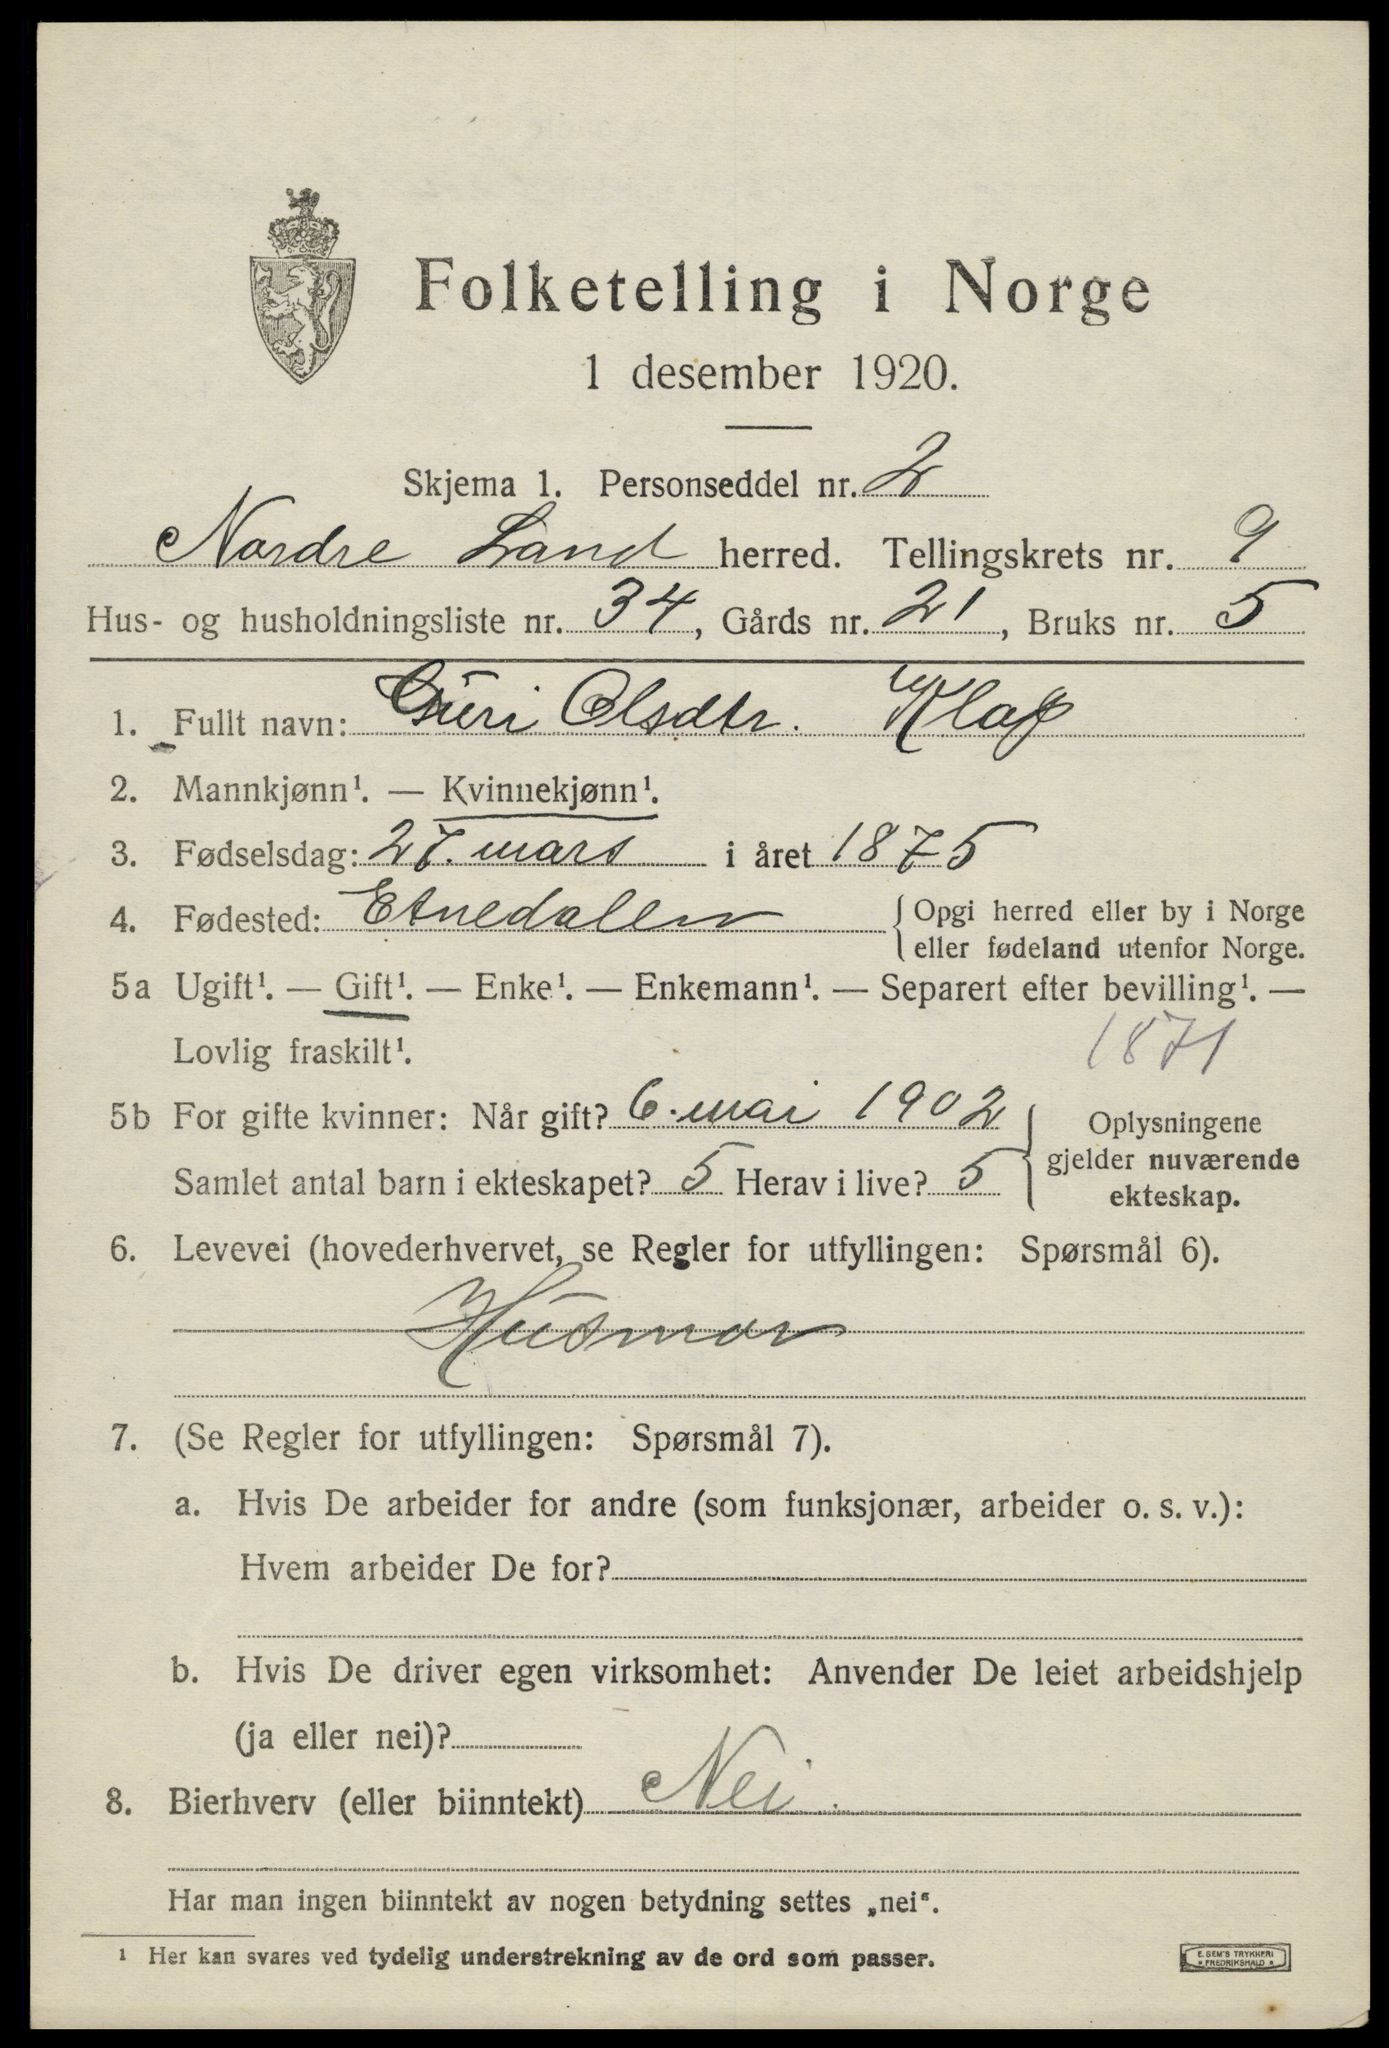 Folketelling i Norge
1 desember 1920.
Skjema 1. Personseddel nr. 2
Nordre Land herred. Tellingskrets nr. 9
Hus- og husholdningsliste nr. 34, Gårds nr. 21, Bruks nr. 5
1. Fullt navn: Guri Olsdtr. Klap
2. Mannkjønn¹. — Kvinnekjønn¹.
3. Fødselsdag: 27. mars i året 1875
4. Fødested: Etnedalen { Opgi herred eller by i Norge
eller fødeland utenfor Norge.
5a Ugift¹. — Gift¹. — Enke¹. — Enkemann¹. — Separert efter bevilling¹. —
Lovlig fraskilt¹. 1871
5b For gifte kvinner: Når gift? 6. mai 1902
Samlet antal barn i ekteskapet? 5 Herav i live? 5
Oplysningene
gjelder nuværende
ekteskap.
6. Levevei (hovederhvervet, se Regler for utfyllingen: Spørsmål 6).
Husmor
7. (Se Regler for utfyllingen: Spørsmål 7).
a. Hvis De arbeider for andre (som funksjonær, arbeider o. s. v.):
Hvem arbeider De for?
b. Hvis De driver egen virksomhet: Anvender De leiet arbeidshjelp
(ja eller nei)?
8. Bierhverv (eller biinntekt) Nei.
Har man ingen biinntekt av nogen betydning settes „nei“.
¹ Her kan svares ved tydelig understrekning av de ord som passer.
E. SEM'S TRYKKERI
* FREDRIKSHALD *